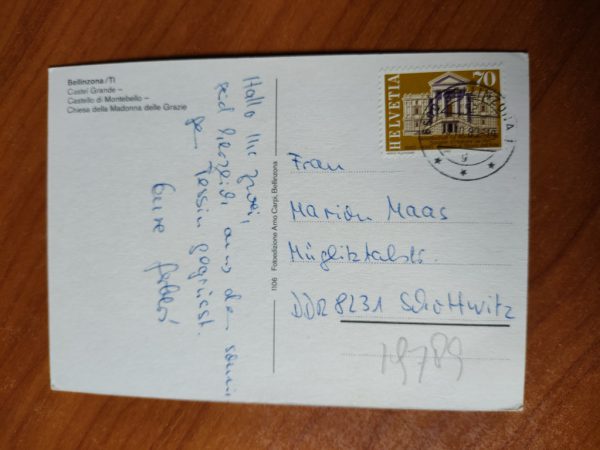 Bellinzona/TI
Castel Grande –
Castello di Montebello –
Chiesa della Madonna delle Grazie
Hallo Ihr zwei,
seid herzlich aus dem sonni
gen Tessin gegrüsst.
Eure
1106 Fotoedizione Arno Carpi, Bellinzona
HELVETIA
70
Frau
Marion Maas
Müglitztalstr.
DDR 8231 Schlottwitz
19789